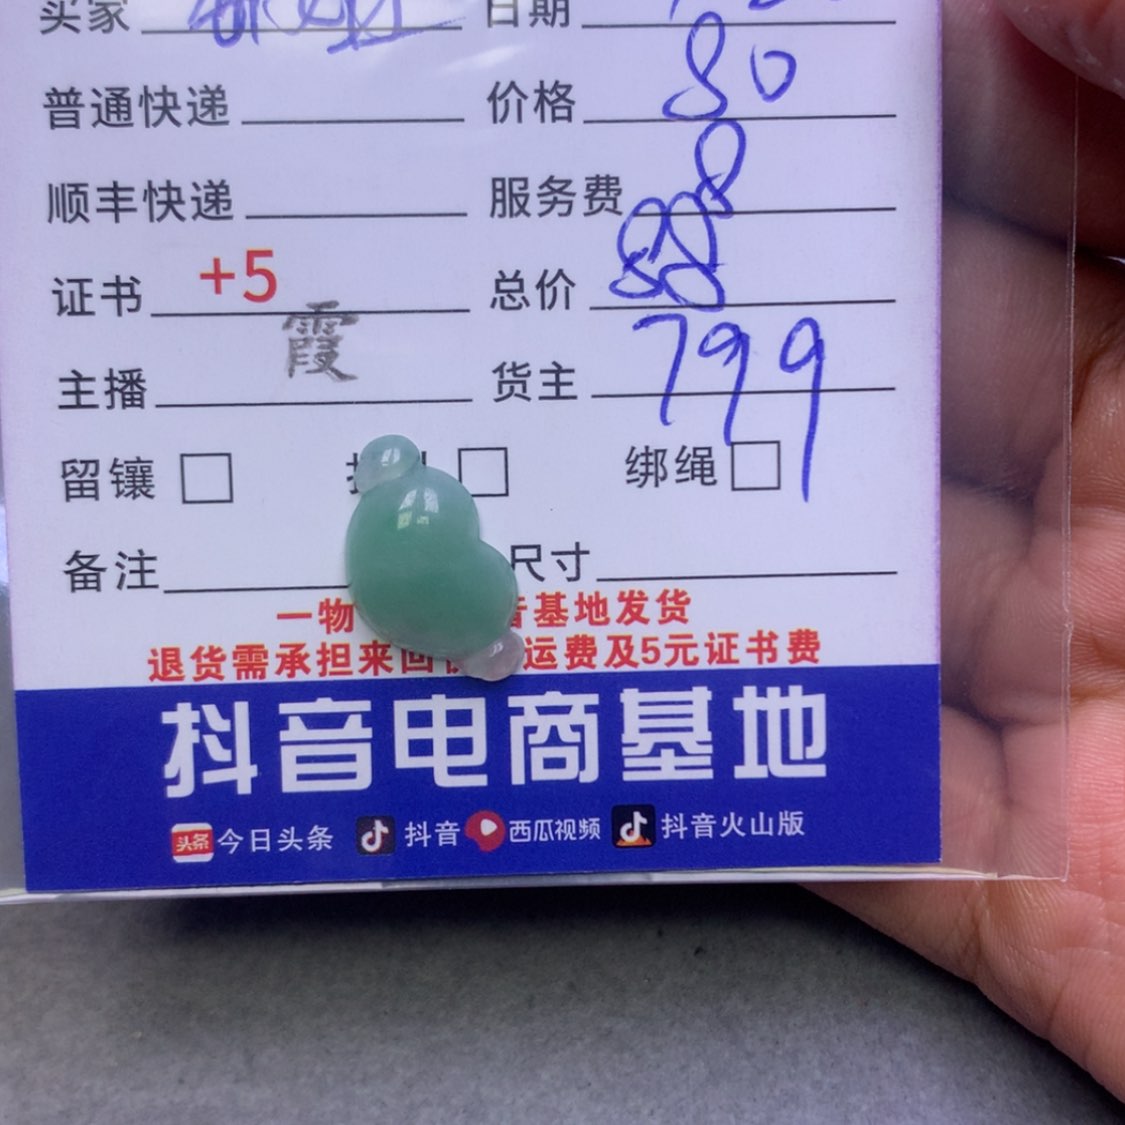 买家 日期
普通快递 价格 80
顺丰快递 服务费 8
证书 +5 总价 88
主播 霞 货主 799
留镶 绑绳
备注 尺寸
一物 音基地发货
退货需承担来回 运费及5元证书费
抖音电商基地
头条 今日头条 抖音 西瓜视频 抖音火山版